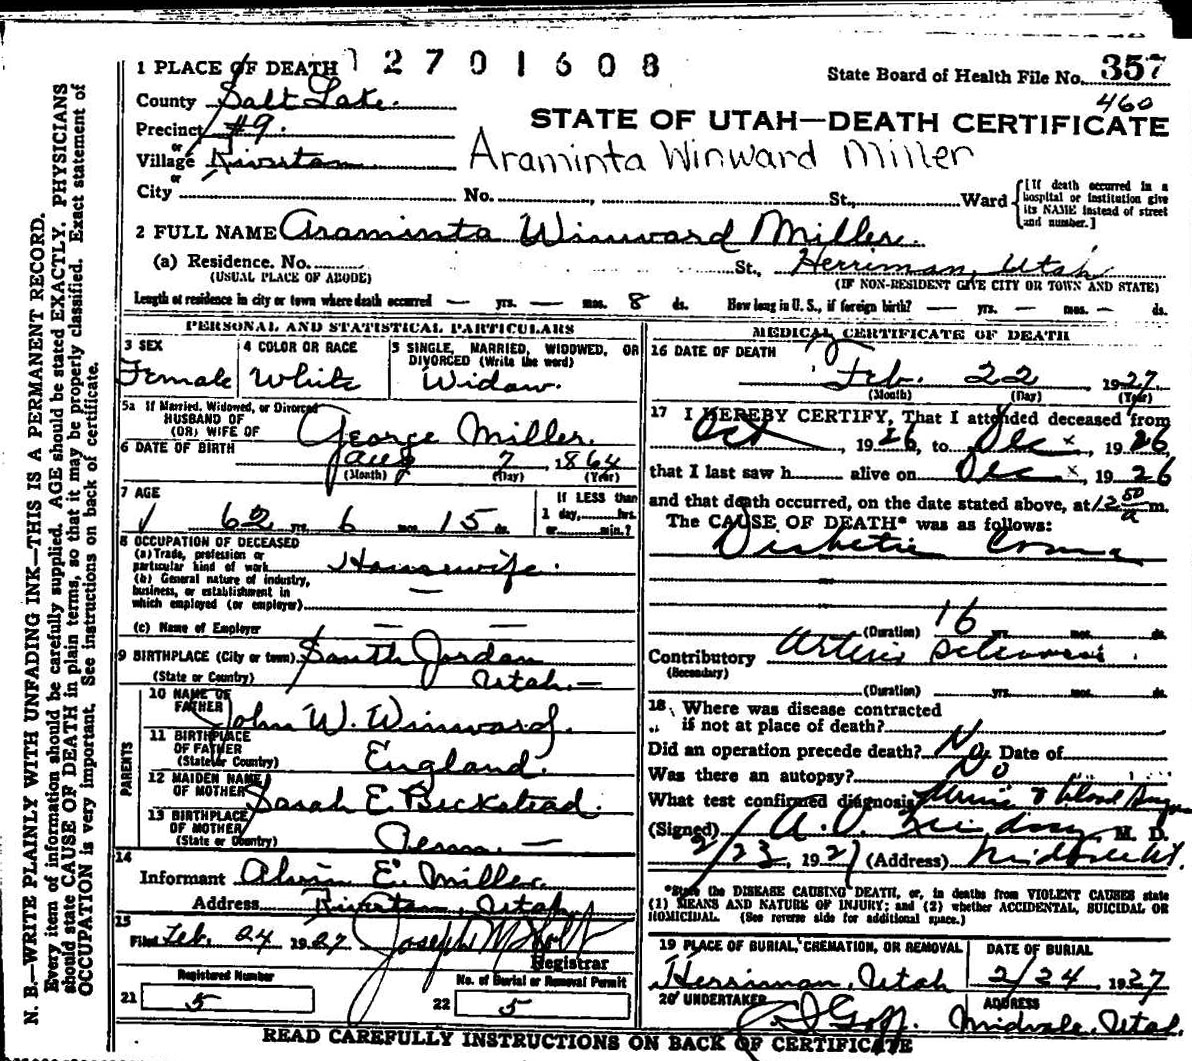 1 PLACE OF DEATH 12701608
State Board of Health File No. 357
460
County Salt Lake.
Precinct #9.
or
Village Riverton
or
City
STATE OF UTAH—DEATH CERTIFICATE
Araminta Winward Miller
No. , St., Ward
[If death occurred in a hospital or institution give its NAME instead of street and number.]
2 FULL NAME Araminta Winward Miller.
(a) Residence. No. St., Herriman, Utah
(USUAL PLACE OF ABODE) (IF NON-RESIDENT GIVE CITY OR TOWN AND STATE)
Length of residence in city or town where death occurred — yrs. — mos. 8 ds. How long in U. S., if foreign birth? — yrs. — mos. — ds.
PERSONAL AND STATISTICAL PARTICULARS
3 SEX
Female
4 COLOR OR RACE
White
5 SINGLE, MARRIED, WIDOWED, OR DIVORCED (Write the word)
Widow.
5a If Married, Widowed, or Divorced
HUSBAND OF
(OR) WIFE OF George Miller.
6 DATE OF BIRTH
Aug 7, 1864
(Month) (Day) (Year)
7 AGE
62 yrs. 6 mos. 15 ds.
If LESS than
1 day, hrs.
or min.?
8 OCCUPATION OF DECEASED
(a) Trade, profession or
particular kind of work Housewife.
(b) General nature of industry,
business, or establishment in
which employed (or employer) —
(c) Name of Employer — —
9 BIRTHPLACE (City or town) South Jordan
(State or Country) Utah.—
PARENTS
10 NAME OF
FATHER John W. Winward.
11 BIRTHPLACE
OF FATHER
(State or Country) England.
12 MAIDEN NAME
OF MOTHER Sarah E. Beckstead.
13 BIRTHPLACE
OF MOTHER
(State or Country)
14
Informant Alvin E. Miller.
Address Riverton, Utah.
15
Filed Feb. 24 1927 Joseph M Holt
Registrar
Registered Number
21 5
No. of Burial or Removal Permit
22 5
MEDICAL CERTIFICATE OF DEATH
16 DATE OF DEATH
Feb. 22, 1927
(Month) (Day) (Year)
17 I HEREBY CERTIFY, That I attended deceased from
Oct, 1926, to Dec x, 1926
that I last saw h alive on Dec x, 1926
and that death occurred, on the date stated above, at 12 50 a m.
The CAUSE OF DEATH* was as follows:
Diabetic Coma
(Duration) 16 yrs. mos. ds.
Contributory Arterio Sclerosis.
(Secondary)
(Duration) yrs. mos. ds.
18 Where was disease contracted
if not at place of death?
Did an operation precede death? No. Date of
Was there an autopsy? No
What test confirmed diagnosis Urine & blood Sugar
(Signed) M. D.
2/23, 1927 (Address) Midvale Ut.
*State the DISEASE CAUSING DEATH, or, in deaths from VIOLENT CAUSES state
(1) MEANS AND NATURE OF INJURY; and (2) whether ACCIDENTAL, SUICIDAL OR
HOMICIDAL. (See reverse side for additional space.)
19 PLACE OF BURIAL, CREMATION, OR REMOVAL
Herriman, Utah
DATE OF BURIAL
2/24, 1927
20 UNDERTAKER
Goff.
ADDRESS
Midvale, Utah.
READ CAREFULLY INSTRUCTIONS ON BACK OF CERTIFICATE
N. B.—WRITE PLAINLY WITH UNFADING INK—THIS IS A PERMANENT RECORD.
Every item of information should be carefully supplied. AGE should be stated EXACTLY. PHYSICIANS
should state CAUSE OF DEATH in plain terms, so that it may be properly classified. Exact statement of
OCCUPATION is very important. See instructions on back of certificate.